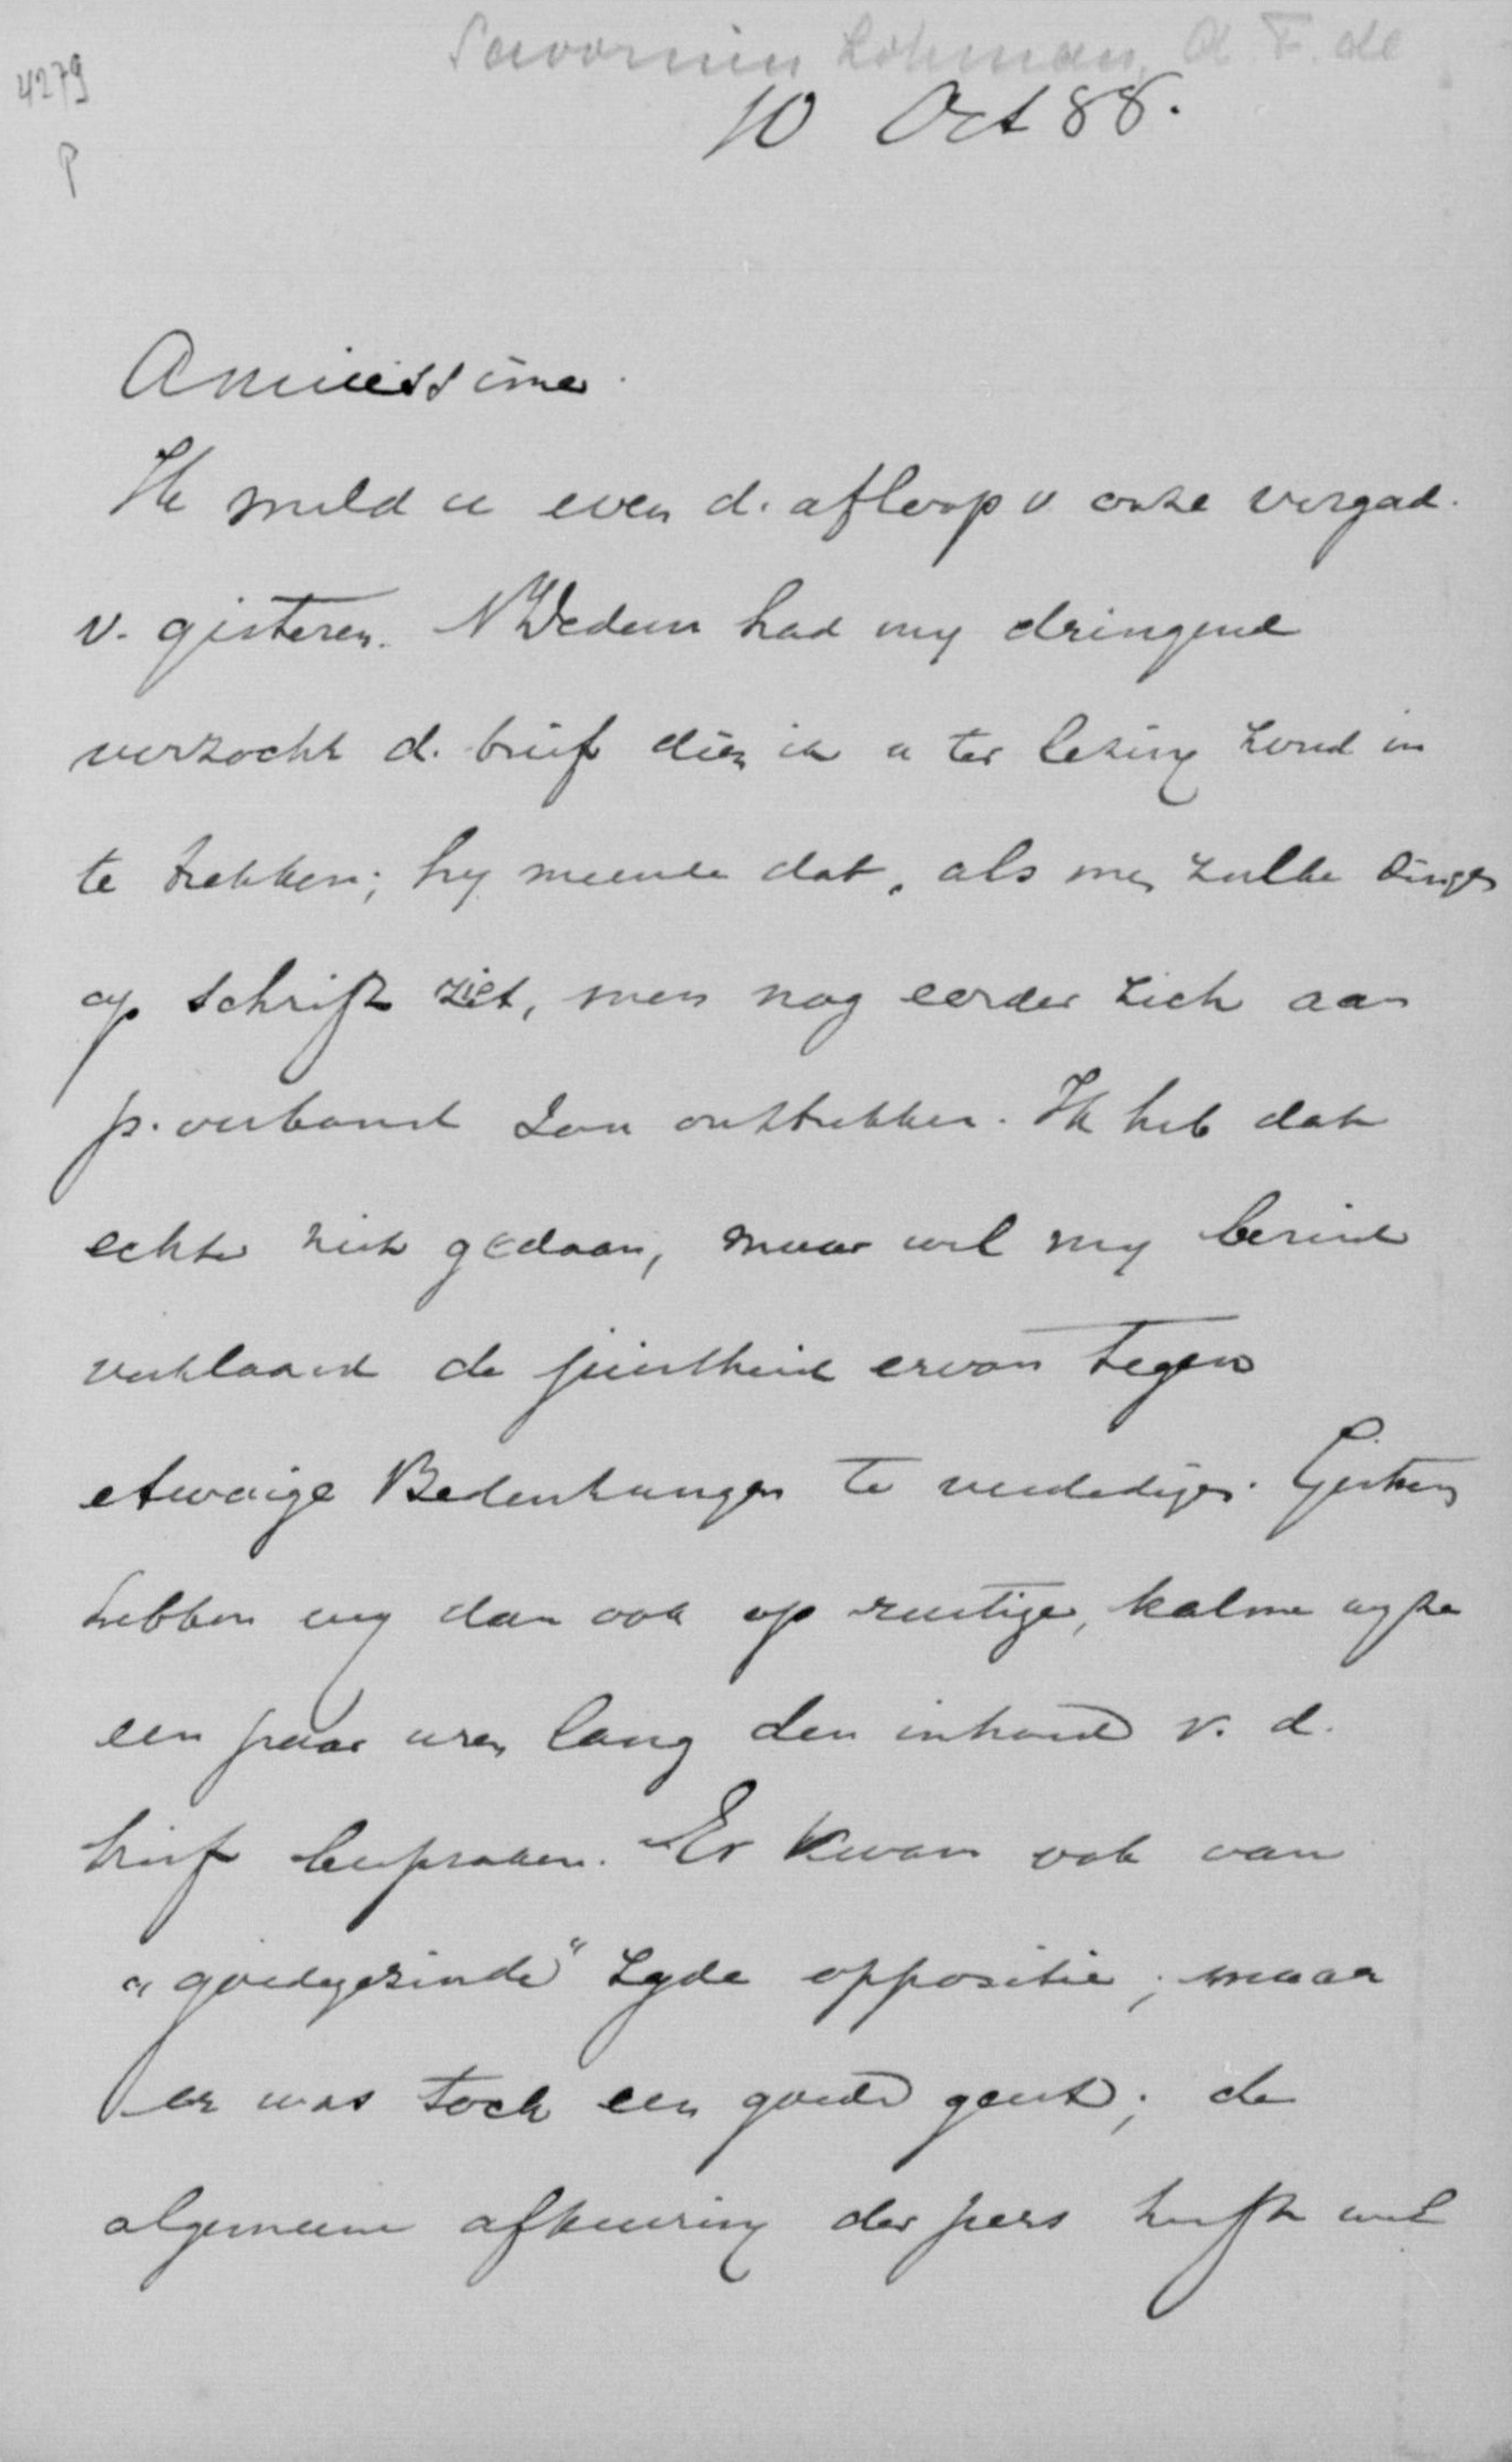 Savornin Lohman, A. F. de
4279
P
10 Oct 88.
Amicissime.
Ik meld u even d. afloop v onze vergad.
v. gisteren. V Wedem had my dringend
verzocht d. brief dien ik u ter lezing zond in
te trekken; hy meende dat, als men zulke dingen
op schrift ziet, men nog eerder zich aan
p. verband zou onttrekken. Ik heb dat
echter niet gedaan, maar wel my bereid
verklaard de juistheid ervan tegen
etwaige Bedenkungen te verdedigen. Gisteren
hebben wy dan ook op rustige, kalme wyze
een paar uren lang den inhoud v. d.
brief besproken. Er kwam ook van
„goedgezinde" zyde oppositie; maar
er was toch een goede geest; de
algemeene afkeuring der pers heeft wel